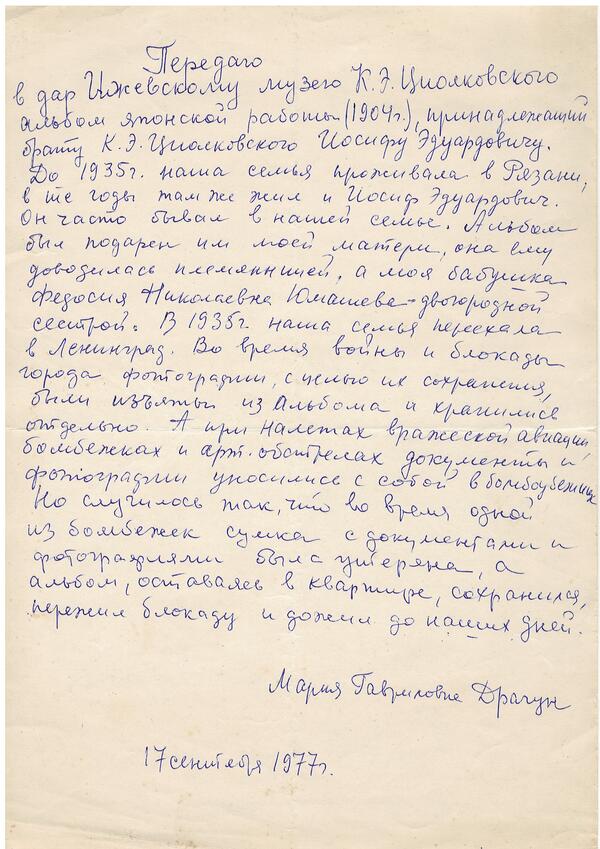 Передаю
в дар Ижевскому музею К.Э.Циолковского
альбом японской работы (1904г.), принадлежащий
брату К.Э.Циолковского Иосифу Эдуардовичу.
До 1935г. наша семья проживала в Рязани,
в те годы там же жил и Иосиф Эдуардович.
Он часто бывал в нашей семье. Альбом
был подарен им моей матери, она ему
доводилась племянницей, а моя бабушка
Федосия Николаевна Юмашева - двоюродной
сестрой. В 1935г. наша семья переехала
в Ленинград. Во время войны и блокады
города фотографии, с целью их сохранения,
были изъяты из альбома и хранились
отдельно. А при налетах вражеской авиации,
бомбежках и арт. обстрелах документы и
фотографии уносились с собой в бомбоубежище
Но случилось так, что во время одной
из бомбежек сумка с документами и
фотографиями была утеряна, а
альбом, оставаясь в квартире, сохранился,
пережил блокаду и дожил до наших дней.
Мария Гавриловна Драчун
17 сентября 1977г.